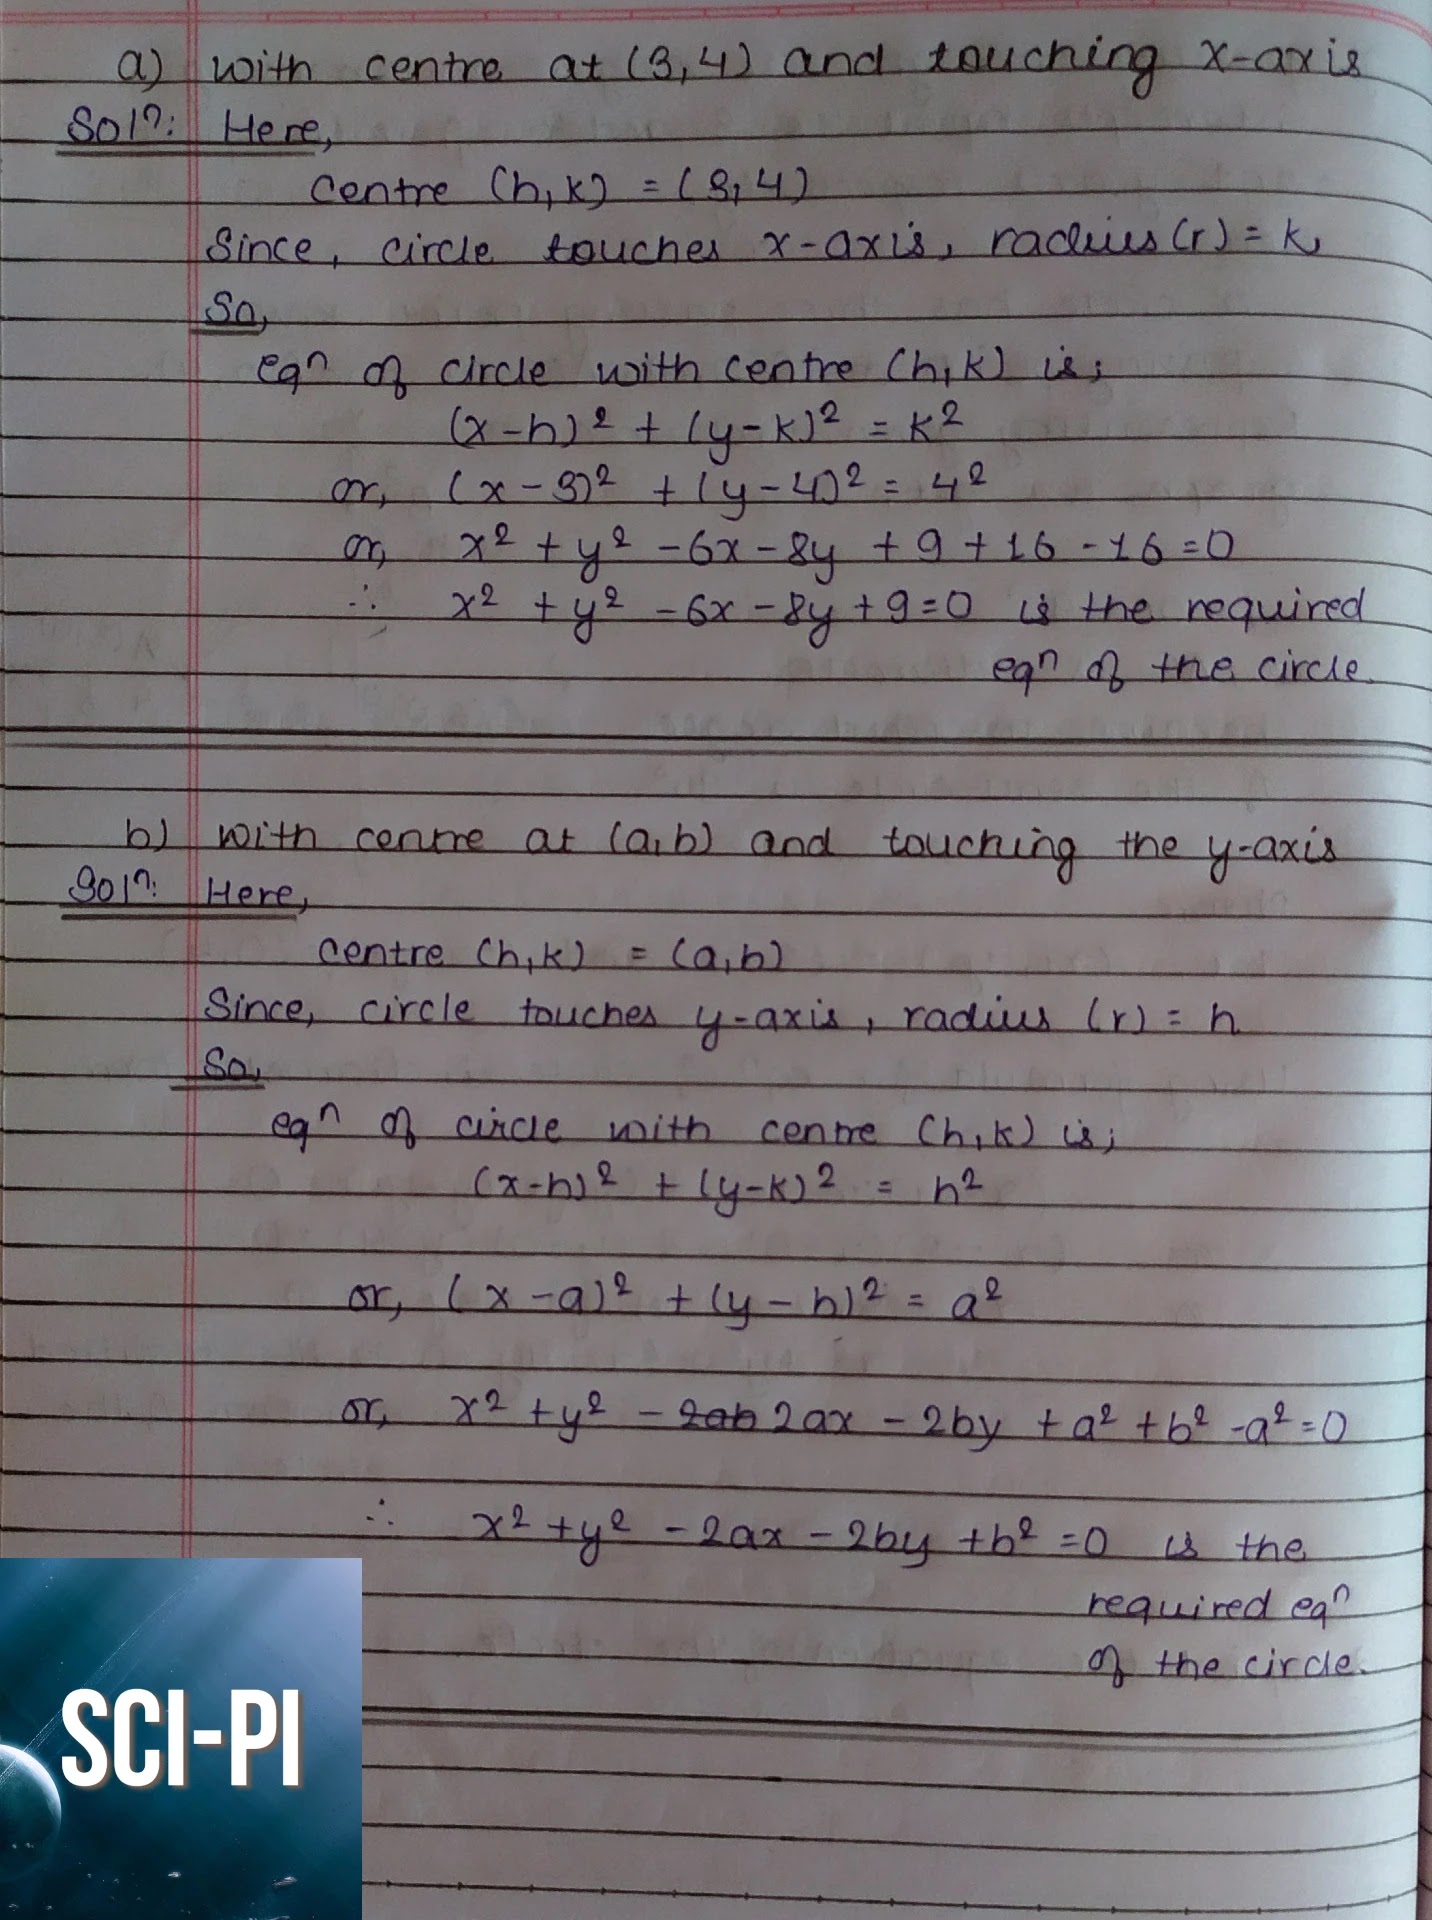 a) with centre at (3,4) and touching x-axis
Solⁿ: Here,
centre (h,k) = (3,4)
Since, circle touches x-axis, radius (r) = k,
So,
eqⁿ of circle with centre (h,k) is;
(x-h)² + (y-k)² = k²
or, (x-3)² + (y-4)² = 4²
or, x² + y² -6x-8y +9+16-16=0
∴ x² + y² -6x-8y+9=0 is the required
eqⁿ of the circle.
b) with centre at (a,b) and touching the y-axis
Solⁿ: Here,
centre (h,k) = (a,b)
Since, circle touches y-axis, radius (r) = h
So,
eqⁿ of circle with centre (h,k) is;
(x-h)² + (y-k)² = h²
or, (x-a)² + (y-b)² = a²
or, x² +y² - 2ab 2ax - 2by + a² +b² -a²=0
∴ x² +y² -2ax-2by +b² =0 is the
required eqⁿ
of the circle.
SCI-PI